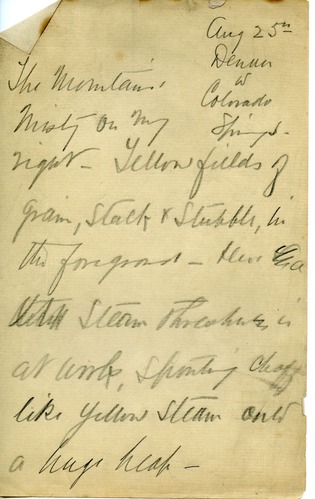 Aug 25th
Denver
to
Colorado
Springs -
The Mountains
Misty on my
right - Yellow fields of
grain, stack & stubble, in
the foreground - Here
Steam threshers is
at work, spouting chaff
like yellow steam onto
a huge heap -